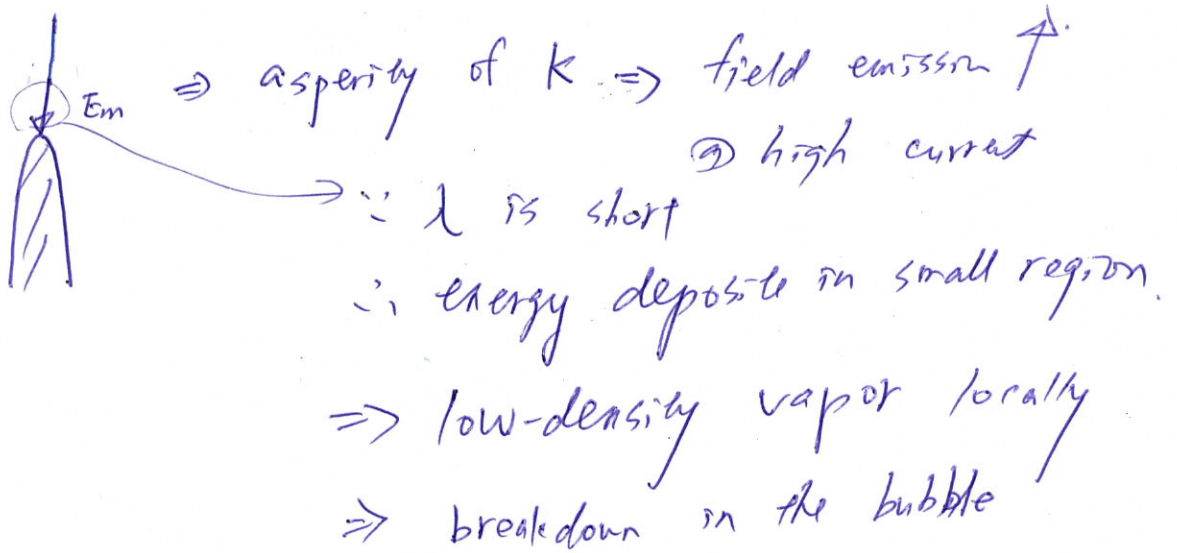 Em ⇒ asperity of K ⇒ field emission ↑
@ high current
∵ λ is short
∴ energy deposite in small region.
⇒ low-density vapor locally
⇒ breakdown in the bubble